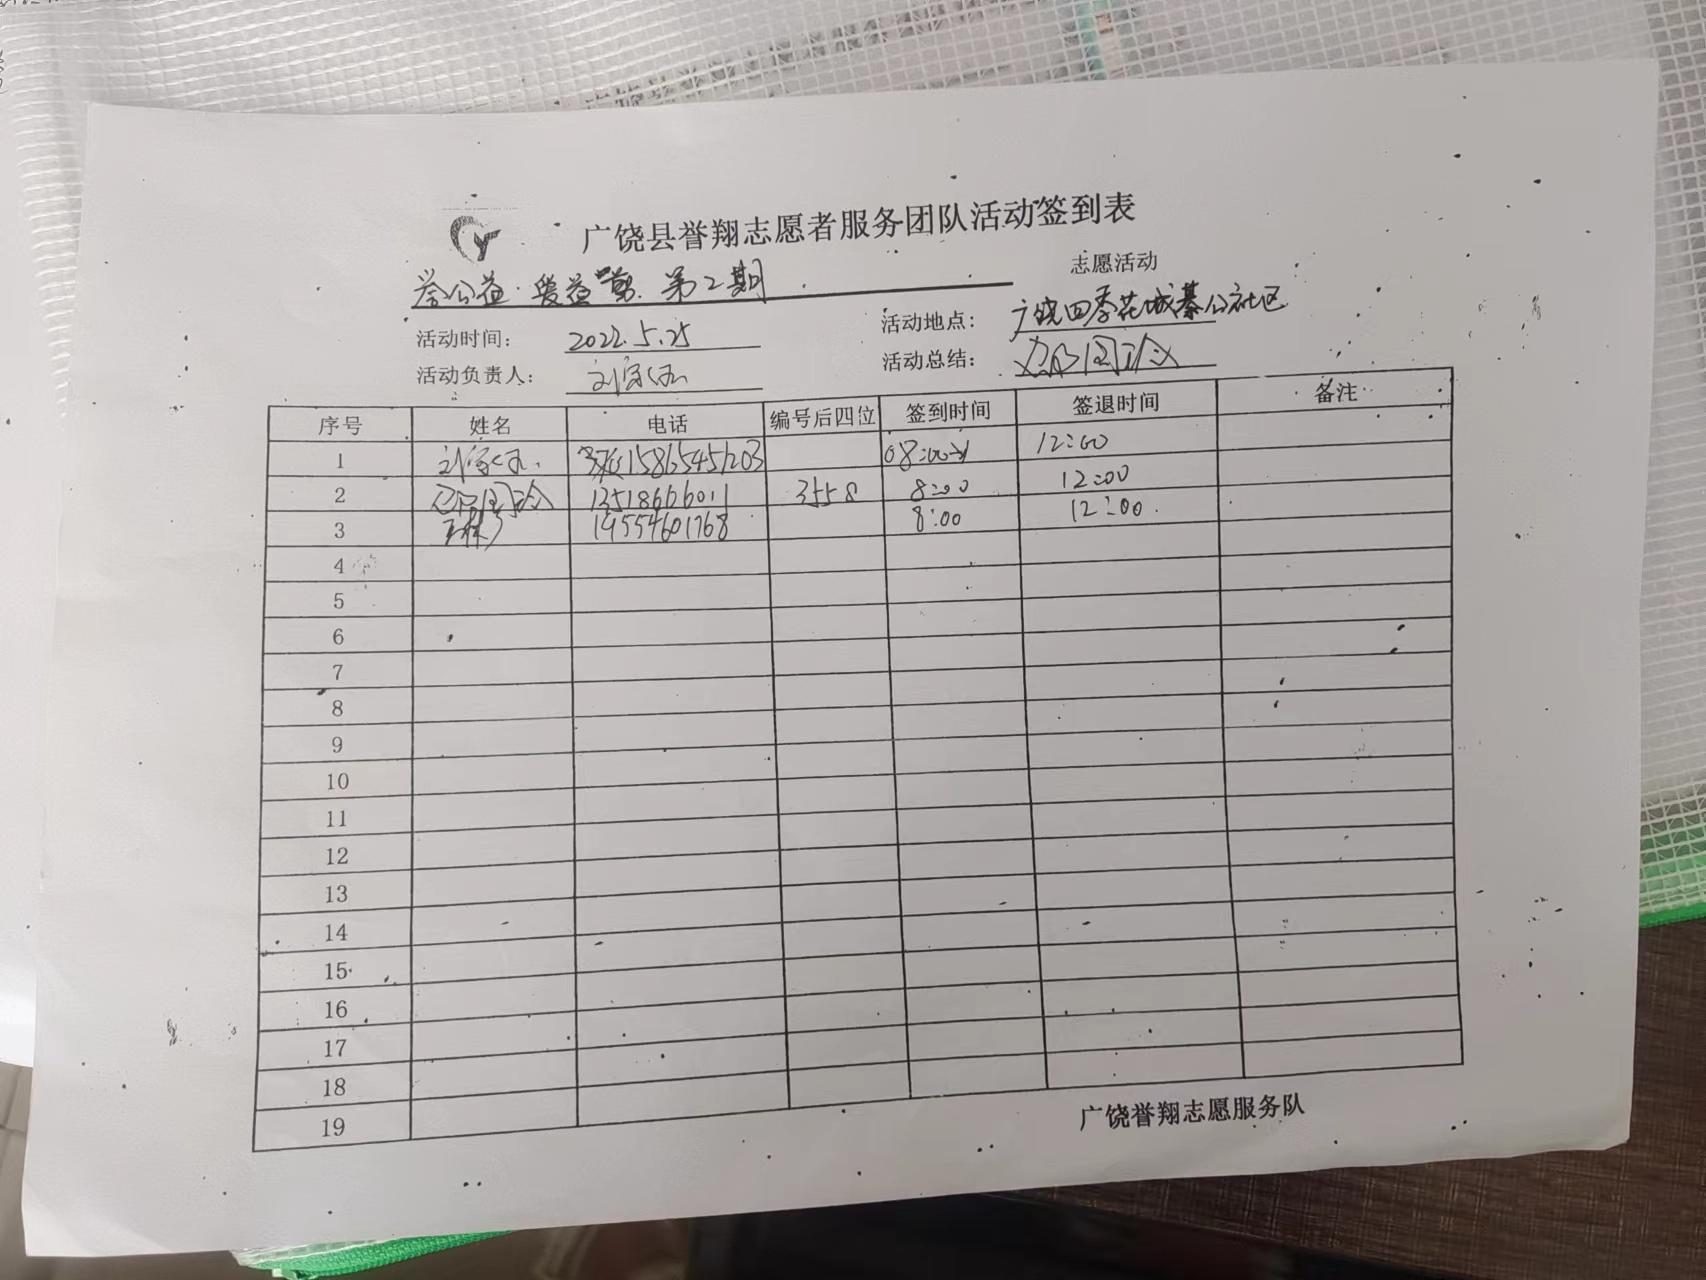 广饶县誉翔志愿者服务团队活动签到表
誉公益·爱益剪 第2期 志愿活动
活动时间： 2022.5.25 活动地点： 广饶四季花城綦公社区
活动负责人： 活动总结：
序号 姓名 电话 编号后四位 签到时间 签退时间 备注
1 15865451203 08:00 12:00
2 13518666011 3558 8:00 12:00
3 19554601768 8:00 12:00.
4
5
6
7
8
9
10
11
12
13
14
15
16
17
18
19
广饶誉翔志愿服务队